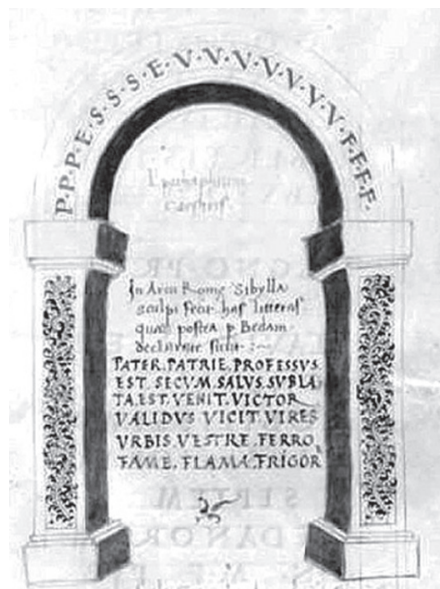 P.P.P.E.S.S.S.E.V.V.V.V.V.V.V.F.F.F.F
In Arcu Rome Sibylla
sculpi fecit has litteras
quas postea p Bedam
declarate
PATER. PATRIE. PROFESSVS.
EST. SECVM. SALVS. SVBLA
TA. EST. VENIT. VICTOR
VALIDVS VICIT. VIRES
VRBIS. VESTRE. FERRO
FAME. FLAMA. FRIGOR